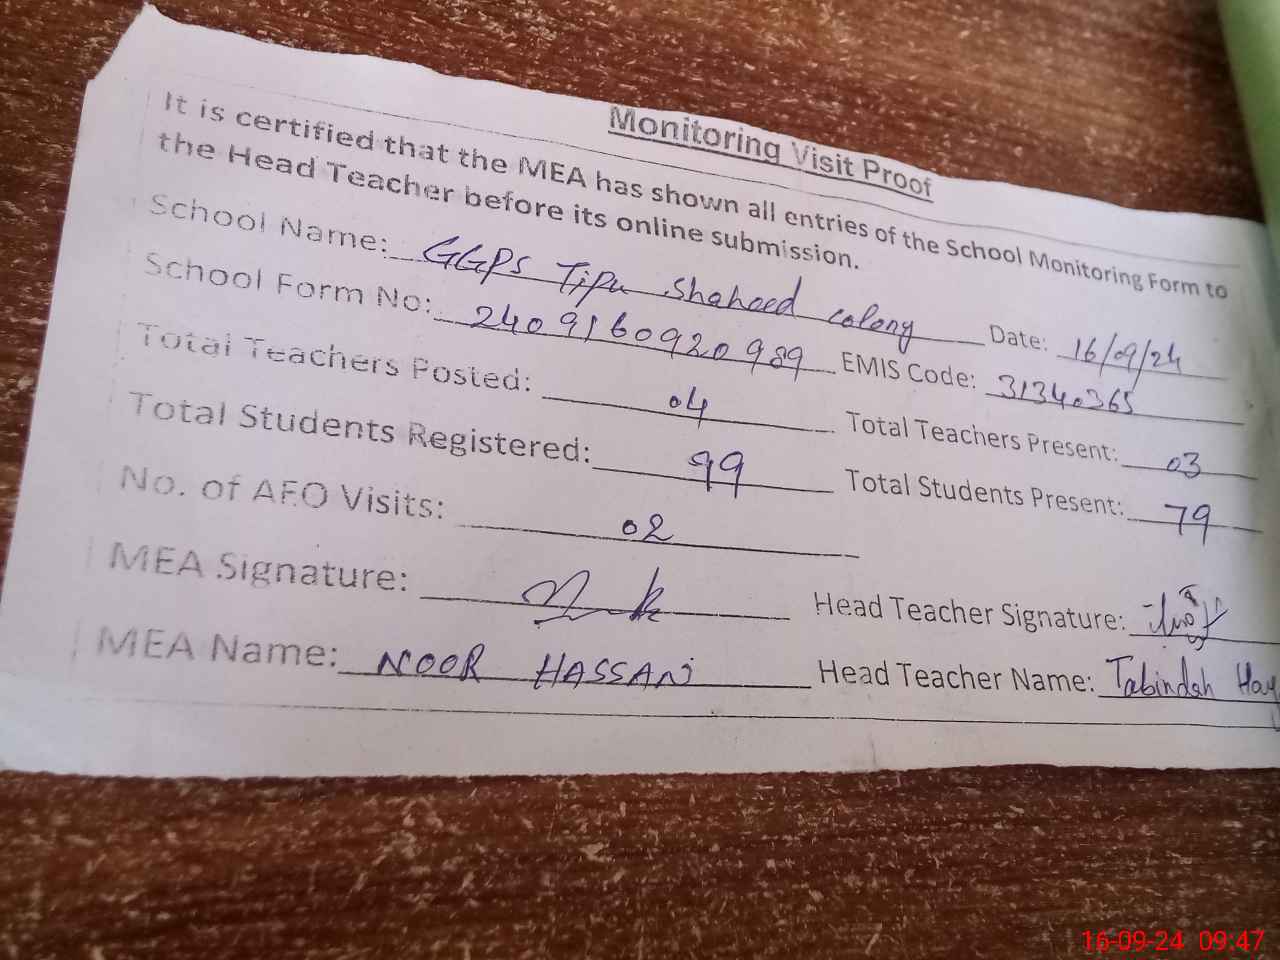 Monitoring Visit Proof
It is certified that the MEA has shown all entries of the School Monitoring Form to
the Head Teacher before its online submission.
School Name: GGPS Tipu Shaheed colony Date: 16/09/24
School Form No: 2409160920989 EMIS Code: 31340365
Total Teachers Posted: 04 Total Teachers Present: 03
Total Students Registered: 99 Total Students Present: 79
No. of AEO Visits: 02
MEA Signature: Head Teacher Signature:
MEA Name: NOOR HASSAN Head Teacher Name: Tabindah
16-09-24 09:47